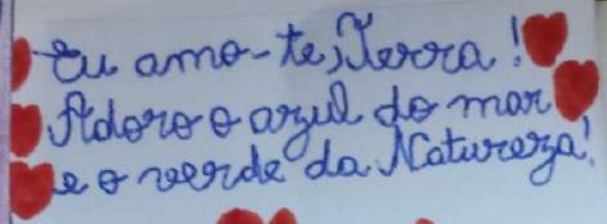 Eu amo-te, Terra!
Adoro o azul do mar
e o verde da Natureza!